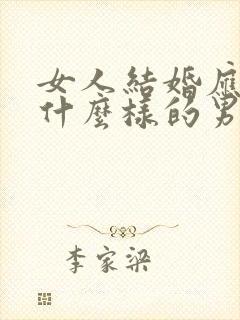 女人結婚應
什麼樣的男
李家梁